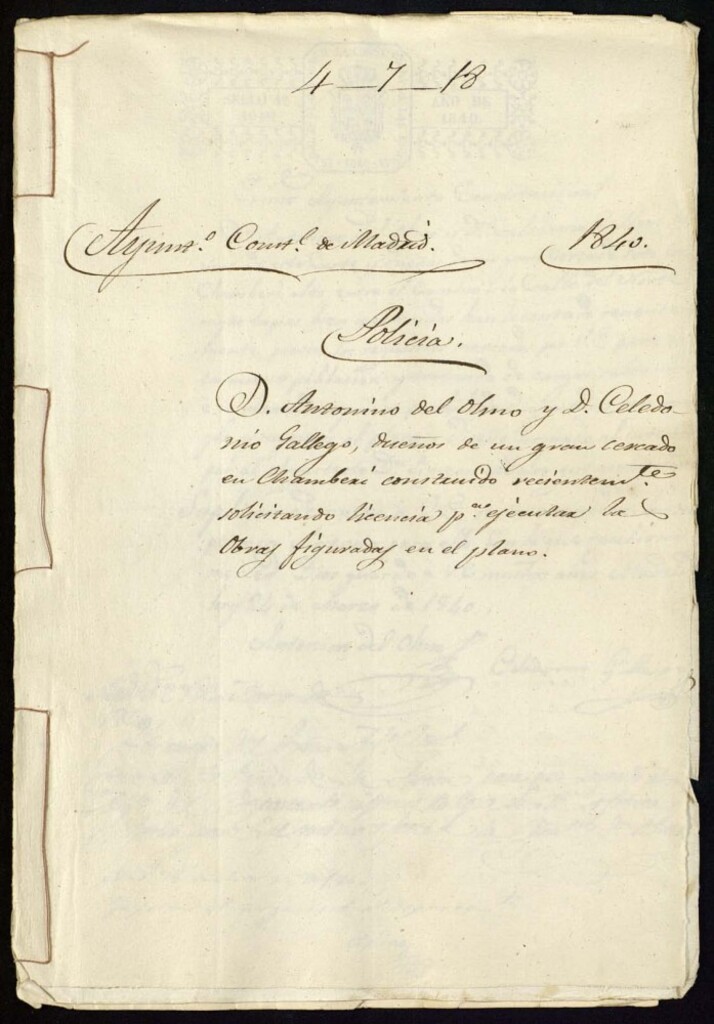 4 - 7 - 18
Ayunt.º Const.l de Madrid. 1840.
Policía.
D. Antonino del Olmo y D. Celedo-
nio Gallego, dueños de un gran cercado
en Chamberí construido recientem.te
solicitando licencia p.ª ejecutar la
Obras figuradas en el plano.